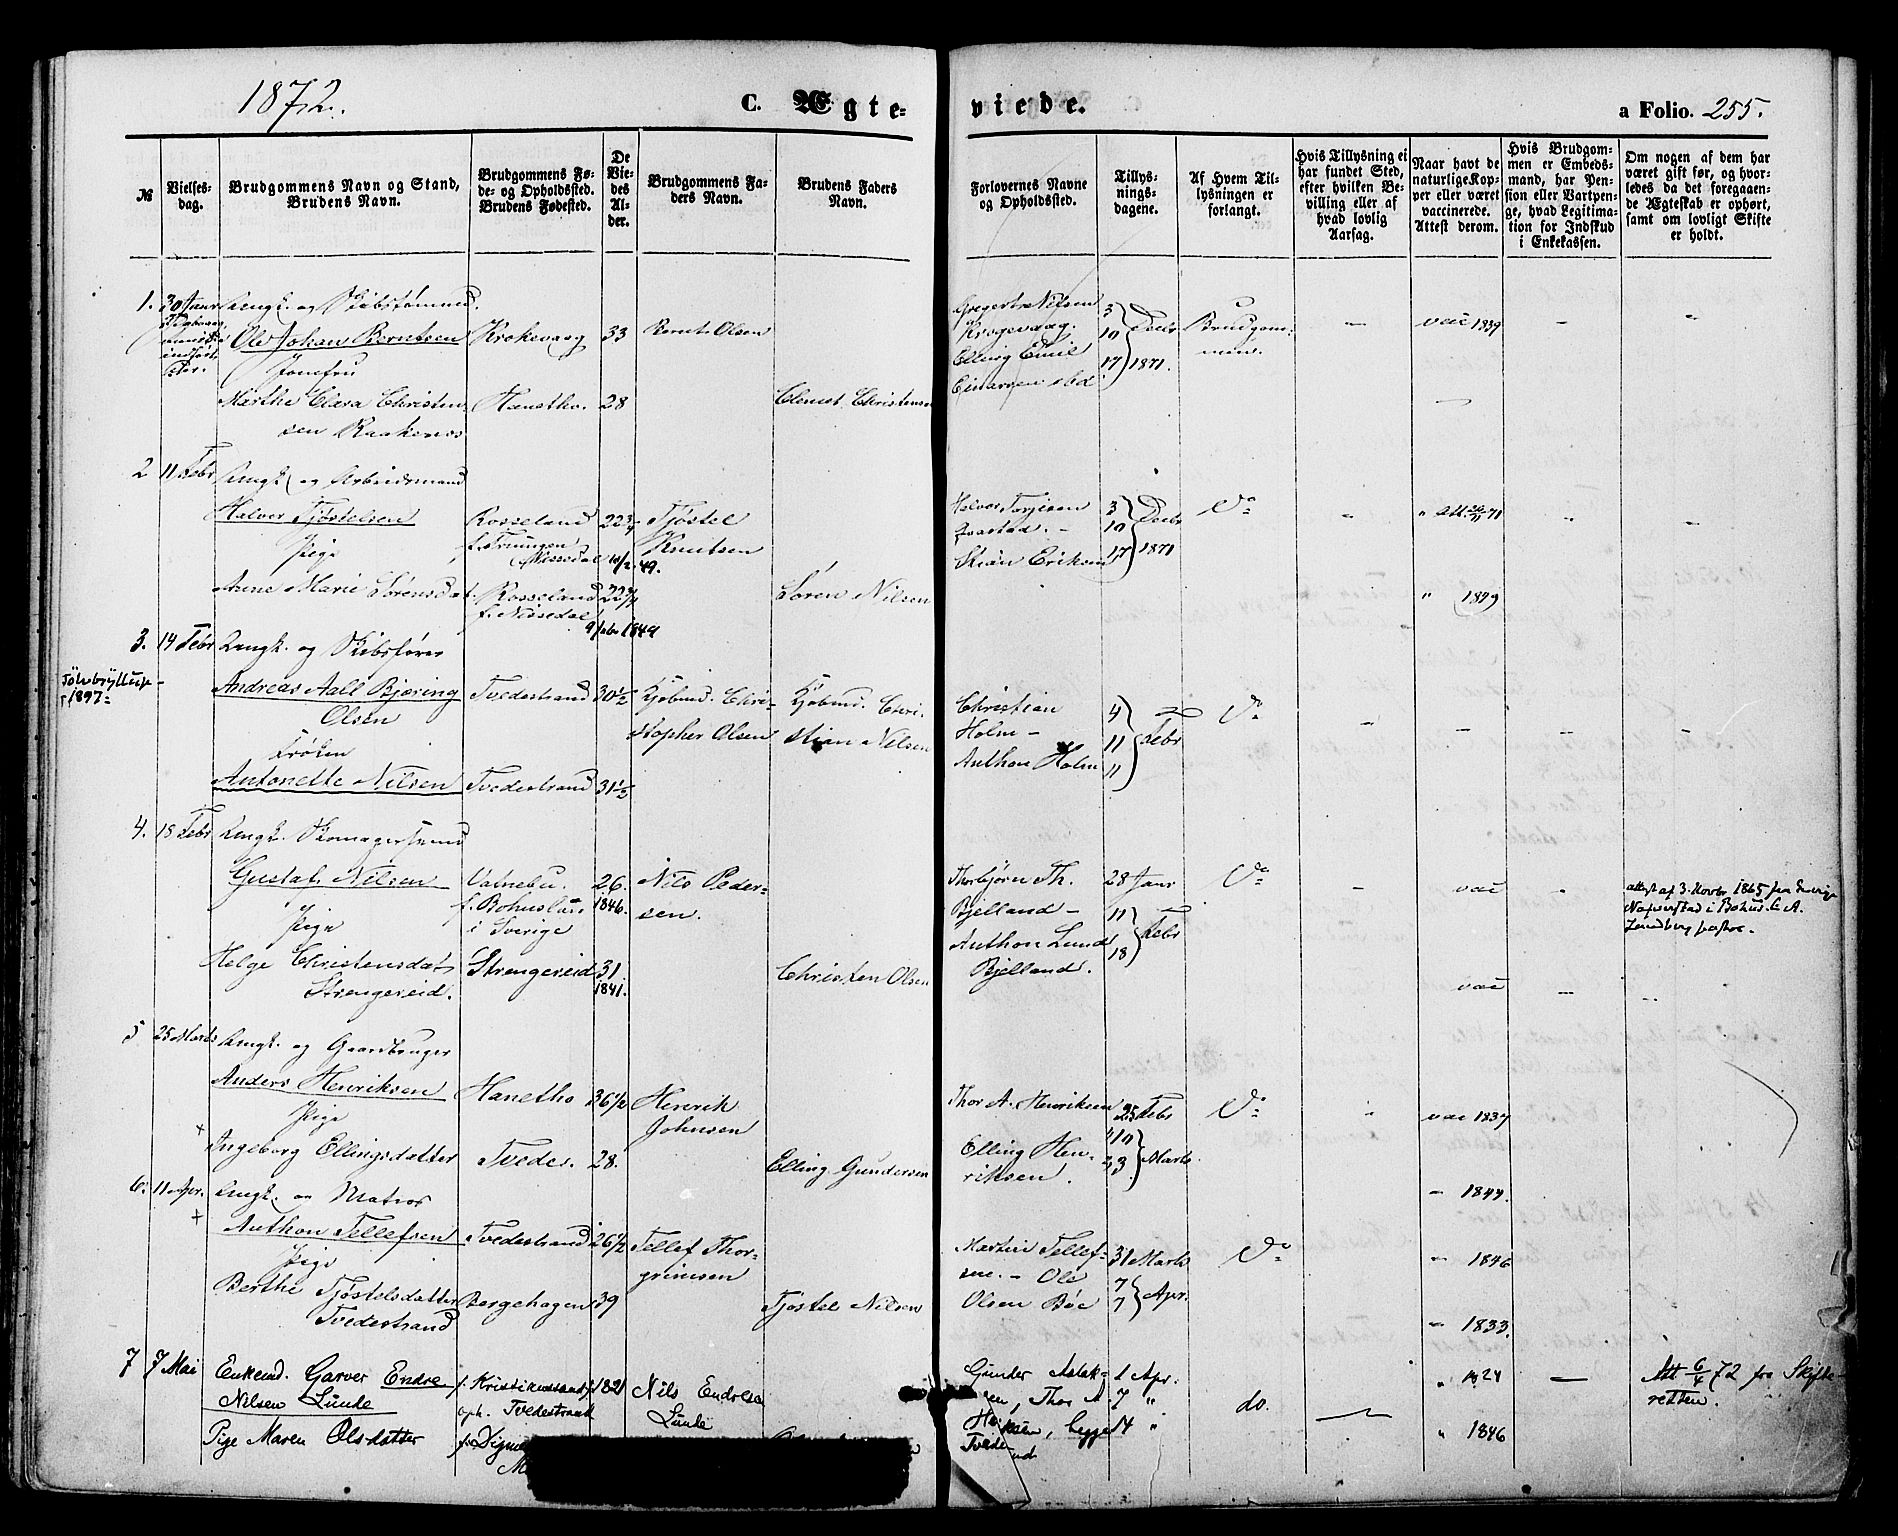 1872.
C. Ægte-
viede.
a Folio. 255.
№
Vielses-
dag.
Brudgommens Navn og Stand,
Brudens Navn.
Brudgommens Fø-
de- og Opholdssted.
Brudens Fødested.
De
Vie-
des
Al-
der.
Brudgommens Fa-
ders Navn.
Brudens Faders
Navn.
Forlovernes Navne
og Opholdssted.
Tillys-
nings-
dagene.
Af Hvem Til-
lysningen er
forlangt.
Hvis Tillysning ei
har fundet Sted,
efter hvilken Be-
villing eller af
hvad lovlig
Aarsag.
Naar havt de
naturlige Kop-
per eller været
vaccinerede.
Attest derom.
Hvis Brudgom-
men er Embeds-
mand, har Pen-
sion eller Vartpen-
ge, hvad Legitima-
tion for Indskud
i Enkekassen.
Om nogen af dem har
været gift før, og hvor-
ledes da det foregaaen-
de Ægteskab er ophørt,
samt om lovligt Skifte
er holdt.
1. 30 Janr Ungk. og Skibstømmd.
Ole Johan Berntsen Krokevaag 33 Bernt Olsen
Jomfru
Marthe Clara Christen-
sen Raakenes Hanetho. 28 Clemet Christensen
Gregert Nilsen
Krogevaag.
Elling Emil
Einarsen ibd.
3
10
17
Decbr
1871.
Brudgom-
men.
vac 1839
2 11 Febr Ungk. og Arbeidsmand
Halvor Tjøstelsen Rosseland 22 3/4 Tjøstel
Knutsen
Pige f. Nissedal
49.
Anne Marie Sørensdat. Rosseland
f. Nissedal Søren Nilsen
9 febr 1849
Halvor Terjesen
Skian Eriksen
3
10
17
Decbr
1871
Do
" 1849
3. 14 Febr Ungk. og Skibsfører
Sølvbryllup
1897
Andreas Aall Bjøring
Olsen Tvedestrand 30 1/2 Kjøbmd. Chri-
stopher Olsen
Kjøbmd. Chri-
stian Nilsen
Frøken
Antonette Nilsen Tvedestrand 31 1/2
Christian
Holm -
Anthon Holm
4
11
11
Febr
Do
4. 18 Febr Ungk. Skomagersvend
Gustaf Nilsen Vatnebu. 26. Nils Peder-
sen.
f. Bohuslän 1846.
i Sverige
Pige
Helge Christensdat.
Strengereid. Strengereid 31 Christen Olsen
1841.
Thorbjørn Th.
Bjelland -
Anthon Lund
Bjelland.
28 Janr
11
18
Febr
Do
vac
vac
attest af 3. Novbr 1865 fra Sverige
Naverstad i Bohus. C. A.
Lundberg pastor.
5 25 Marts Ungk. og Gaardbruger
Anders Henriksen Hanetho 36 1/2 Henrik
Johnsen
Pige
Ingeborg Ellingsdatter Tvede. 28. Elling Gundersen
Thor A. Henriksen
Elling Hen-
riksen.
25 Febr
10
3
Marts
Do
vac 1837
" 1844.
6. 11 Apr. Ungk. og Matros
Anthon Tellefsen Tvedestrand 26 1/2 Tellef Thor-
grimsen
Pige
Berthe Tjøstelsdatter Bergehagen 39 Tjøstel Nilsen
Tvedestrand
Martin Tellef-
sen. - Ole
Olsen Bøe
31 Marts
7
7
Apr.
Do
" 1846
" 1833.
7 7 Mai Enkemd. Garver Endre
Nilsen Lunde f. Kristianssand 1821 Nils Endresen
Lunde
oph. Tvedestrand
Pige Maren Olsdatter
Gunder Aslak-
sen, Thor A
begge
Tvede-
nd
1 Apr.
7 "
14 "
do.
" 24
" 1846
Att 6/4 72 fra Skifte-
retten.